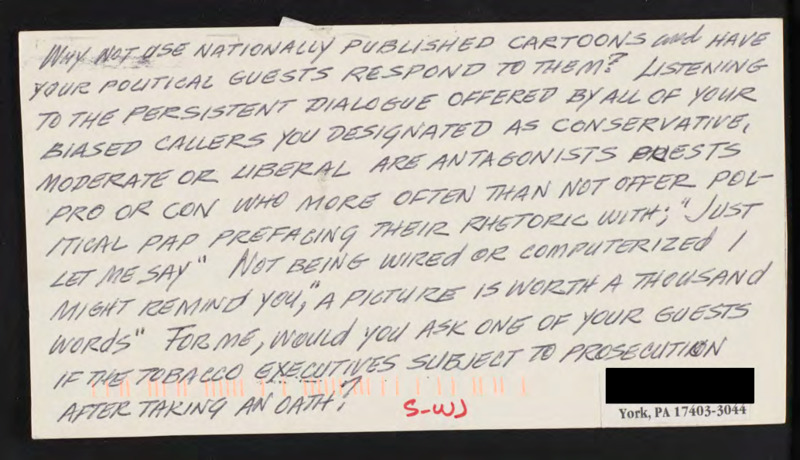 WHY NOT USE NATIONALLY PUBLISHED CARTOONS and HAVE
YOUR POLITICAL GUESTS RESPOND TO THEM? LISTENING
TO THE PERSISTENT DIALOGUE OFFERED BY ALL OF YOUR
BIASED CALLERS YOU DESIGNATED AS CONSERVATIVE,
MODERATE OR LIBERAL ARE ANTAGONISTS GUESTS
PRO OR CON WHO MORE OFTEN THAN NOT OFFER POL-
ITICAL PAP PREFACING THEIR RHETORIC WITH; "JUST
LET ME SAY" NOT BEING WIRED OR COMPUTERIZED I
MIGHT REMIND YOU, "A PICTURE IS WORTH A THOUSAND
WORDS" FOR ME, WOULD YOU ASK ONE OF YOUR GUESTS
IF THE TOBACCO EXECUTIVES SUBJECT TO PROSECUTION
AFTER TAKING AN OATH?
S-WJ
York, PA 17403-3044